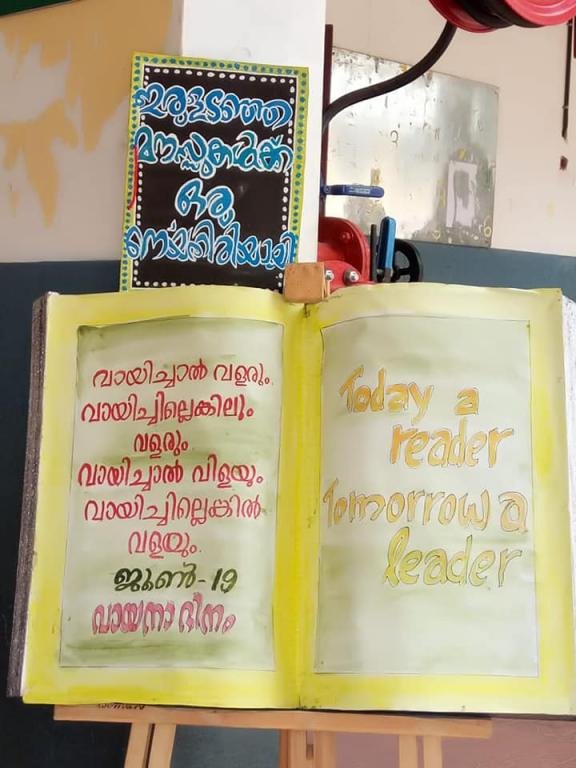 ഇരുളടഞ്ഞ
മനസ്സുകൾക്ക്
ഒരു
നെയ്ത്തിരിയായി
വായിച്ചാൽ വളരും.
വായിച്ചില്ലെങ്കിലും
വളരും
വായിച്ചാൽ വിളയും
വായിച്ചില്ലെങ്കിൽ
വളയും.
ജൂൺ-19
വായനാ ദിനം
Today a
reader
Tomorrow a
leader